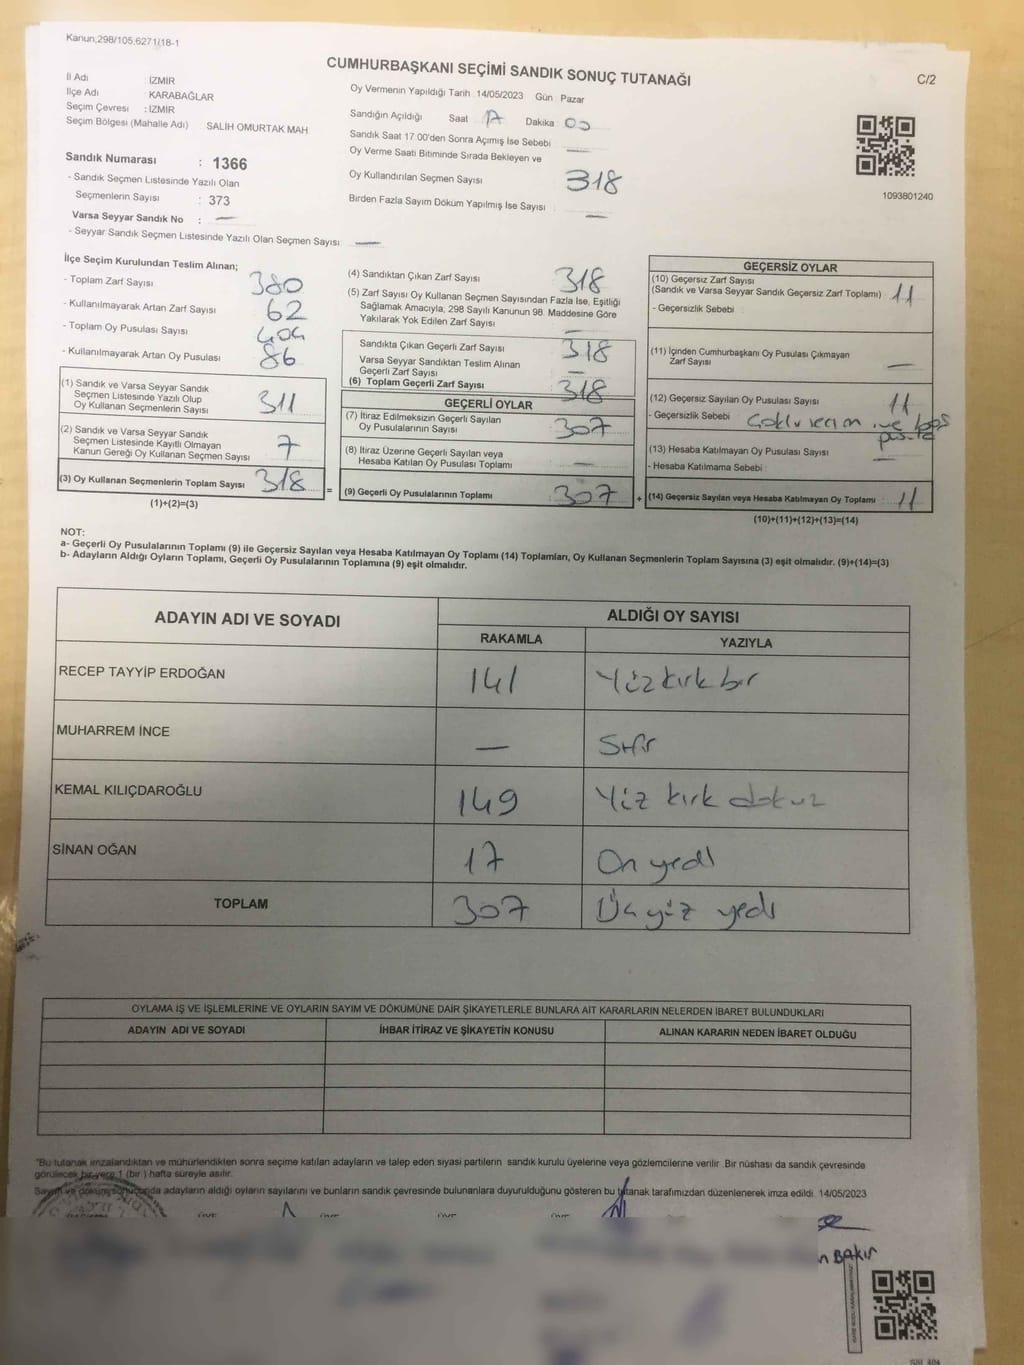 Kanun;298/105.6271/18-1
CUMHURBAŞKANI SEÇİMİ SANDIK SONUÇ TUTANAĞI
C/2
İl Adı : İZMİR
İlçe Adı : KARABAĞLAR
Seçim Çevresi : İZMİR
Seçim Bölgesi (Mahalle Adı) SALİH OMURTAK MAH
Oy Vermenin Yapıldığı Tarih 14/05/2023 Gün Pazar
Sandığın Açıldığı Saat 17 Dakika 00
Sandık Saat 17:00'den Sonra Açımış İse Sebebi —
Oy Verme Saati Bitiminde Sırada Bekleyen ve
Oy Kullandırılan Seçmen Sayısı 318
Birden Fazla Sayım Döküm Yapılmış İse Sayısı —
1093801240
Sandık Numarası : 1366
- Sandık Seçmen Listesinde Yazılı Olan
Seçmenlerin Sayısı : 373
Varsa Seyyar Sandık No : —
- Seyyar Sandık Seçmen Listesinde Yazılı Olan Seçmen Sayısı: —
İlçe Seçim Kurulundan Teslim Alınan;
- Toplam Zarf Sayısı 380
- Kullanılmayarak Artan Zarf Sayısı 62
- Toplam Oy Pusulası Sayısı
- Kullanılmayarak Artan Oy Pusulası 86
(1) Sandık ve Varsa Seyyar Sandık
Seçmen Listesinde Yazılı Olup
Oy Kullanan Seçmenlerin Sayısı 311
(2) Sandık ve Varsa Seyyar Sandık
Seçmen Listesinde Kayıtlı Olmayan
Kanun Gereği Oy Kullanan Seçmen Sayısı 7
(3) Oy Kullanan Seçmenlerin Toplam Sayısı 318 =
(1)+(2)=(3)
(4) Sandıktan Çıkan Zarf Sayısı 318
(5) Zarf Sayısı Oy Kullanan Seçmen Sayısından Fazla İse, Eşitliği
Sağlamak Amacıyla; 298 Sayılı Kanunun 98. Maddesine Göre
Yakılarak Yok Edilen Zarf Sayısı —
Sandıkta Çıkan Geçerli Zarf Sayısı 318
Varsa Seyyar Sandıktan Teslim Alınan
Geçerli Zarf Sayısı —
(6) Toplam Geçerli Zarf Sayısı 318
GEÇERLİ OYLAR
(7) İtiraz Edilmeksizin Geçerli Sayılan
Oy Pusulalarının Sayısı 307
(8) İtiraz Üzerine Geçerli Sayılan veya
Hesaba Katılan Oy Pusulası Toplamı —
(9) Geçerli Oy Pusulalarının Toplamı 307 +
GEÇERSİZ OYLAR
(10) Geçersiz Zarf Sayısı
(Sandık ve Varsa Seyyar Sandık Geçersiz Zarf Toplamı) : 11
- Geçersizlik Sebebi :
(11) İçinden Cumhurbaşkanı Oy Pusulası Çıkmayan
Zarf Sayısı —
(12) Geçersiz Sayılan Oy Pusulası Sayısı 11
- Geçersizlik Sebebi :
(13) Hesaba Katılmayan Oy Pusulası Sayısı —
- Hesaba Katılmama Sebebi :
(14) Geçersiz Sayılan veya Hesaba Katılmayan Oy Toplamı : 11
(10)+(11)+(12)+(13)=(14)
NOT:
a- Geçerli Oy Pusulalarının Toplamı (9) ile Geçersiz Sayılan veya Hesaba Katılmayan Oy Toplamı (14) Toplamları, Oy Kullanan Seçmenlerin Toplam Sayısına (3) eşit olmalıdır. (9)+(14)=(3)
b- Adayların Aldığı Oyların Toplamı, Geçerli Oy Pusulalarının Toplamına (9) eşit olmalıdır.
ADAYIN ADI VE SOYADI ALDIĞI OY SAYISI
RAKAMLA YAZIYLA
RECEP TAYYİP ERDOĞAN 141 Yüz kırk bir
MUHARREM İNCE — Sıfır
KEMAL KILIÇDAROĞLU 149 Yüz kırk dokuz
SİNAN OĞAN 17 On yedi
TOPLAM 307 Üç yüz yedi
OYLAMA İŞ VE İŞLEMLERİNE VE OYLARIN SAYIM VE DÖKÜMÜNE DAİR ŞİKAYETLERLE BUNLARA AİT KARARLARIN NELERDEN İBARET BULUNDUKLARI
ADAYIN ADI VE SOYADI İHBAR İTİRAZ VE ŞİKAYETİN KONUSU ALINAN KARARIN NEDEN İBARET OLDUĞU
"Bu tutanak imzalandıktan ve mühürlendikten sonra seçime katılan adayların ve talep eden siyasi partilerin sandık kurulu üyelerine veya gözlemcilerine verilir. Bir nüshası da sandık çevresinde
görülecek bir yere 1 (bir) hafta süreyle asılır.
Sayım ve döküm sonucunda adayların aldığı oyların sayılarını ve bunların sandık çevresinde bulunanlara duyurulduğunu gösteren bu tutanak tarafımızdan düzenlenerek imza edildi. 14/05/2023
BAKIR